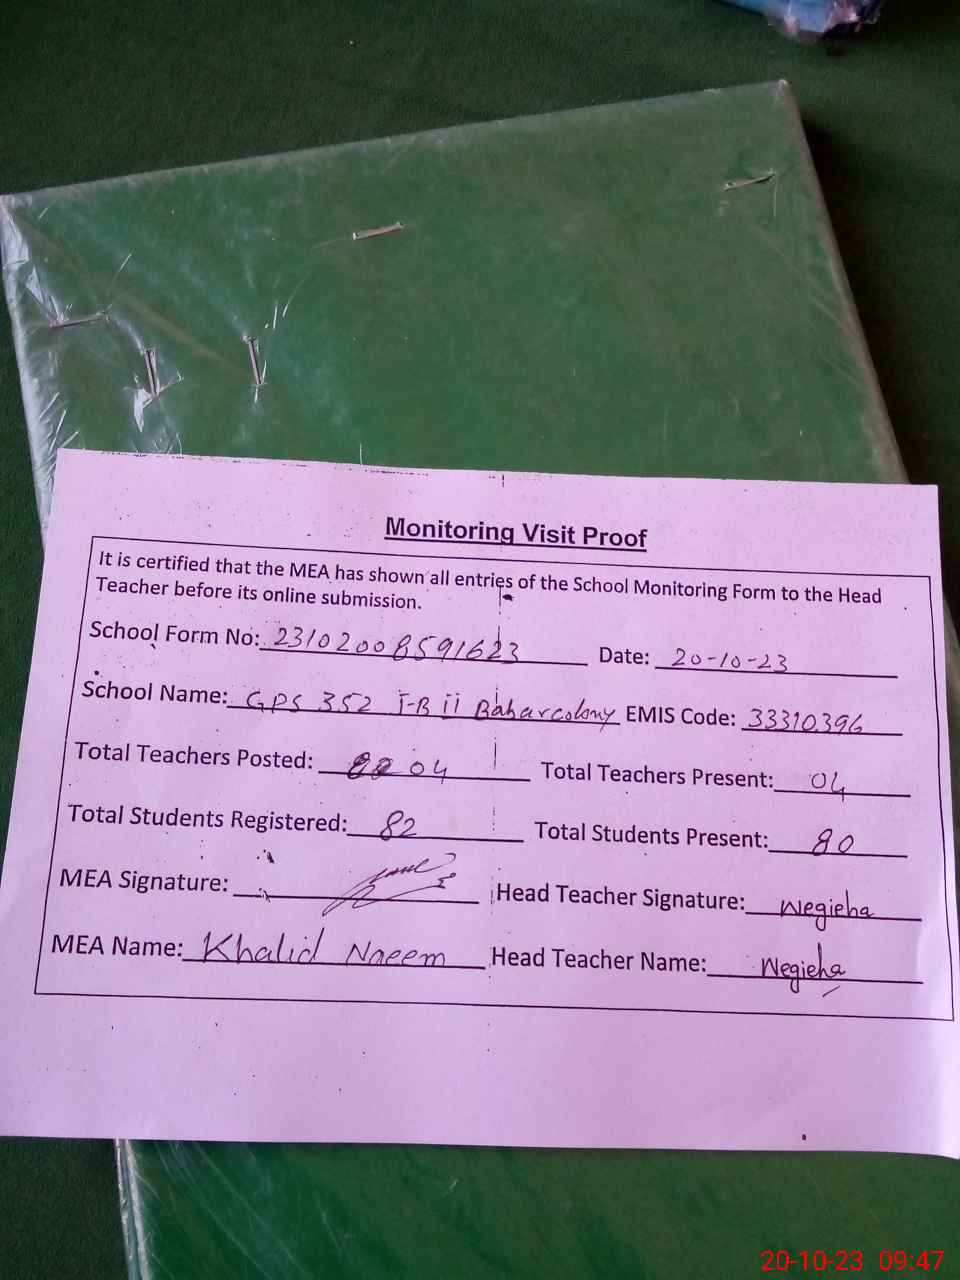 Monitoring Visit Proof
It is certified that the MEA has shown all entries of the School Monitoring Form to the Head
Teacher before its online submission.
School Form No: 23102008591623 Date: 20-10-23
School Name: GPS 352 T-B ii Baharcolony EMIS Code: 33310396
Total Teachers Posted: 04 Total Teachers Present: 04
Total Students Registered: 82 Total Students Present: 80
MEA Signature: Head Teacher Signature: Negieha
MEA Name: Khalid Naeem Head Teacher Name: Negieha
20-10-23 09:47